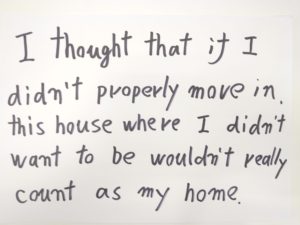 I thought that if I
didn't properly move in.
this house where I didn't
want to be wouldn't really
count as my home.